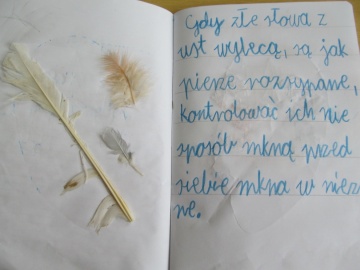 Gdy złe słowa z
ust wylecą, są jak
pierze rozsypane,
kontrolować ich nie
sposób mkną przed
siebie mkna w niez
ne.